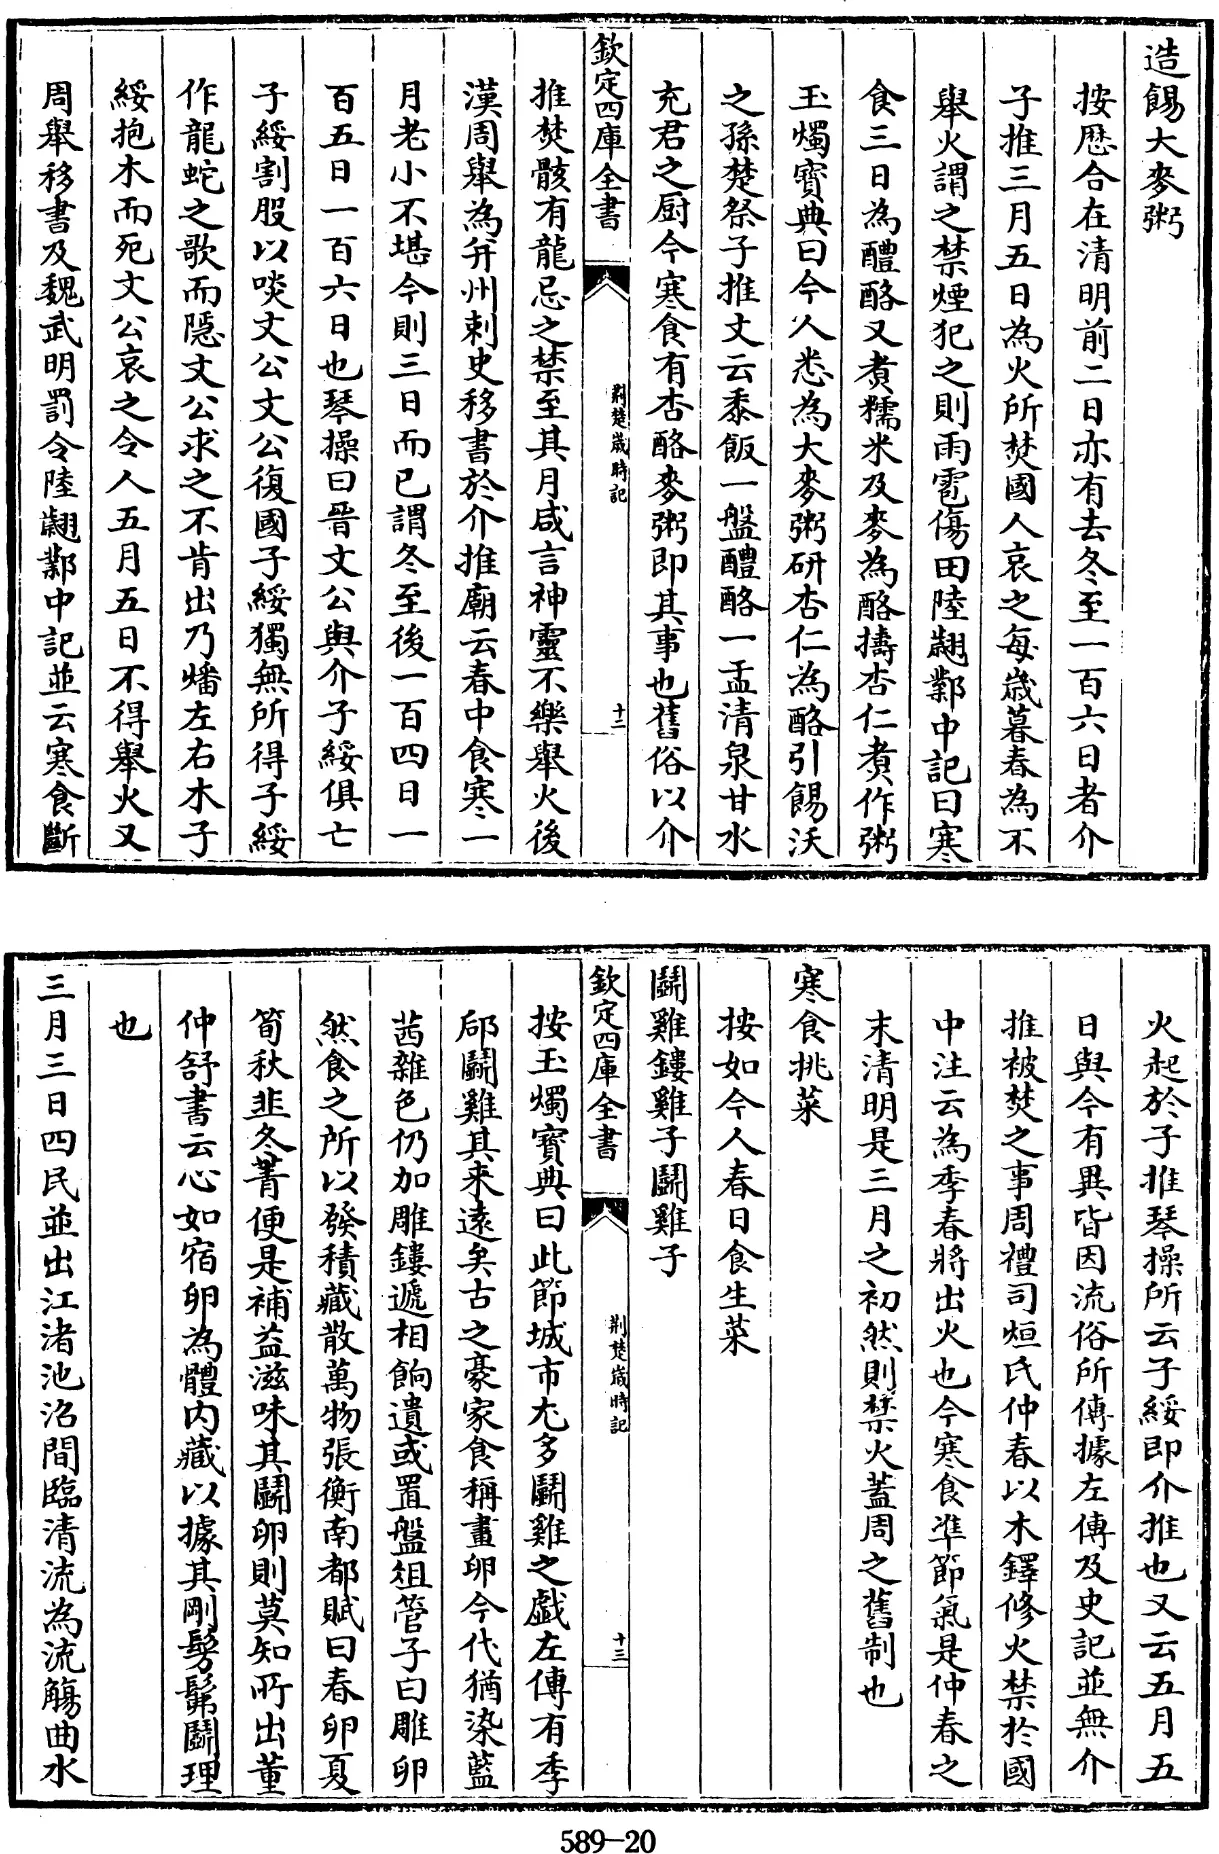 造餳大麥粥
按厯合在清明前二日亦有去冬至一百六日者介
子推三月五日為火所焚國人哀之每歳暮春為不
舉火謂之禁煙犯之則雨雹傷田陸翽鄴中記曰寒
食三日為醴酪又煮糯米及麥為酪擣杏仁煮作粥
玉燭寳典曰今人悉為大麥粥研杏仁為酪引餳沃
之孫楚祭子推文云黍飯一盤醴酪一盂清泉甘水
充君之厨今寒食有杏酪麥粥即其事也舊俗以介
欽定四庫全書
荆楚歳時記
十二
推焚骸有龍忌之禁至其月咸言神靈不樂舉火後
漢周舉為并州刺史移書於介推廟云春中食寒一
月老小不堪今則三日而已謂冬至後一百四日一
百五日一百六日也琴操曰晉文公與介子綏俱亡
子綏割股以啖文公文公復國子綏獨無所得子綏
作龍蛇之歌而隠文公求之不肯出乃燔左右木子
綏抱木而死文公哀之令人五月五日不得舉火又
周舉移書及魏武明罰令陸翽鄴中記並云寒食斷
火起於子推琴操所云子綏即介推也又云五月五
日與今有異皆因流俗所傳據左傳及史記並無介
推被焚之事周禮司烜氏仲春以木鐸修火禁於國
中注云為季春將出火也今寒食凖節氣是仲春之
末清明是三月之初然則禁火蓋周之舊制也
寒食挑菜
按如今人春日食生菜
鬭雞鏤雞子鬭雞子
欽定四庫全書
荆楚歳時記
十三
按玉燭寳典曰此節城市尤多鬭雞之戯左傳有季
郈鬭雞其来遠矣古之豪家食稱畫卵今代猶染藍
茜雜色仍加雕鏤遞相餉遺或置盤俎管子曰雕卵
然食之所以發積藏散萬物張衡南都賦曰春卵夏
筍秋韭冬菁便是補益滋味其鬭卵則莫知所出董
仲舒書云心如宿卵為體内藏以據其剛髣髴鬭理
也
三月三日四民並出江渚池沼間臨清流為流觴曲水
589-20